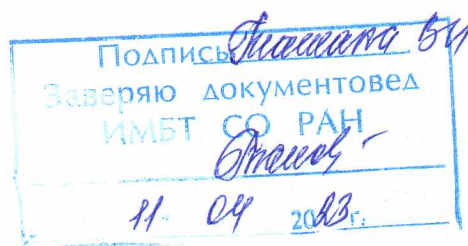 Подпись Ташака ВИ
Заверяю документовед
ИМБТ СО РАН
11 04 2023г.